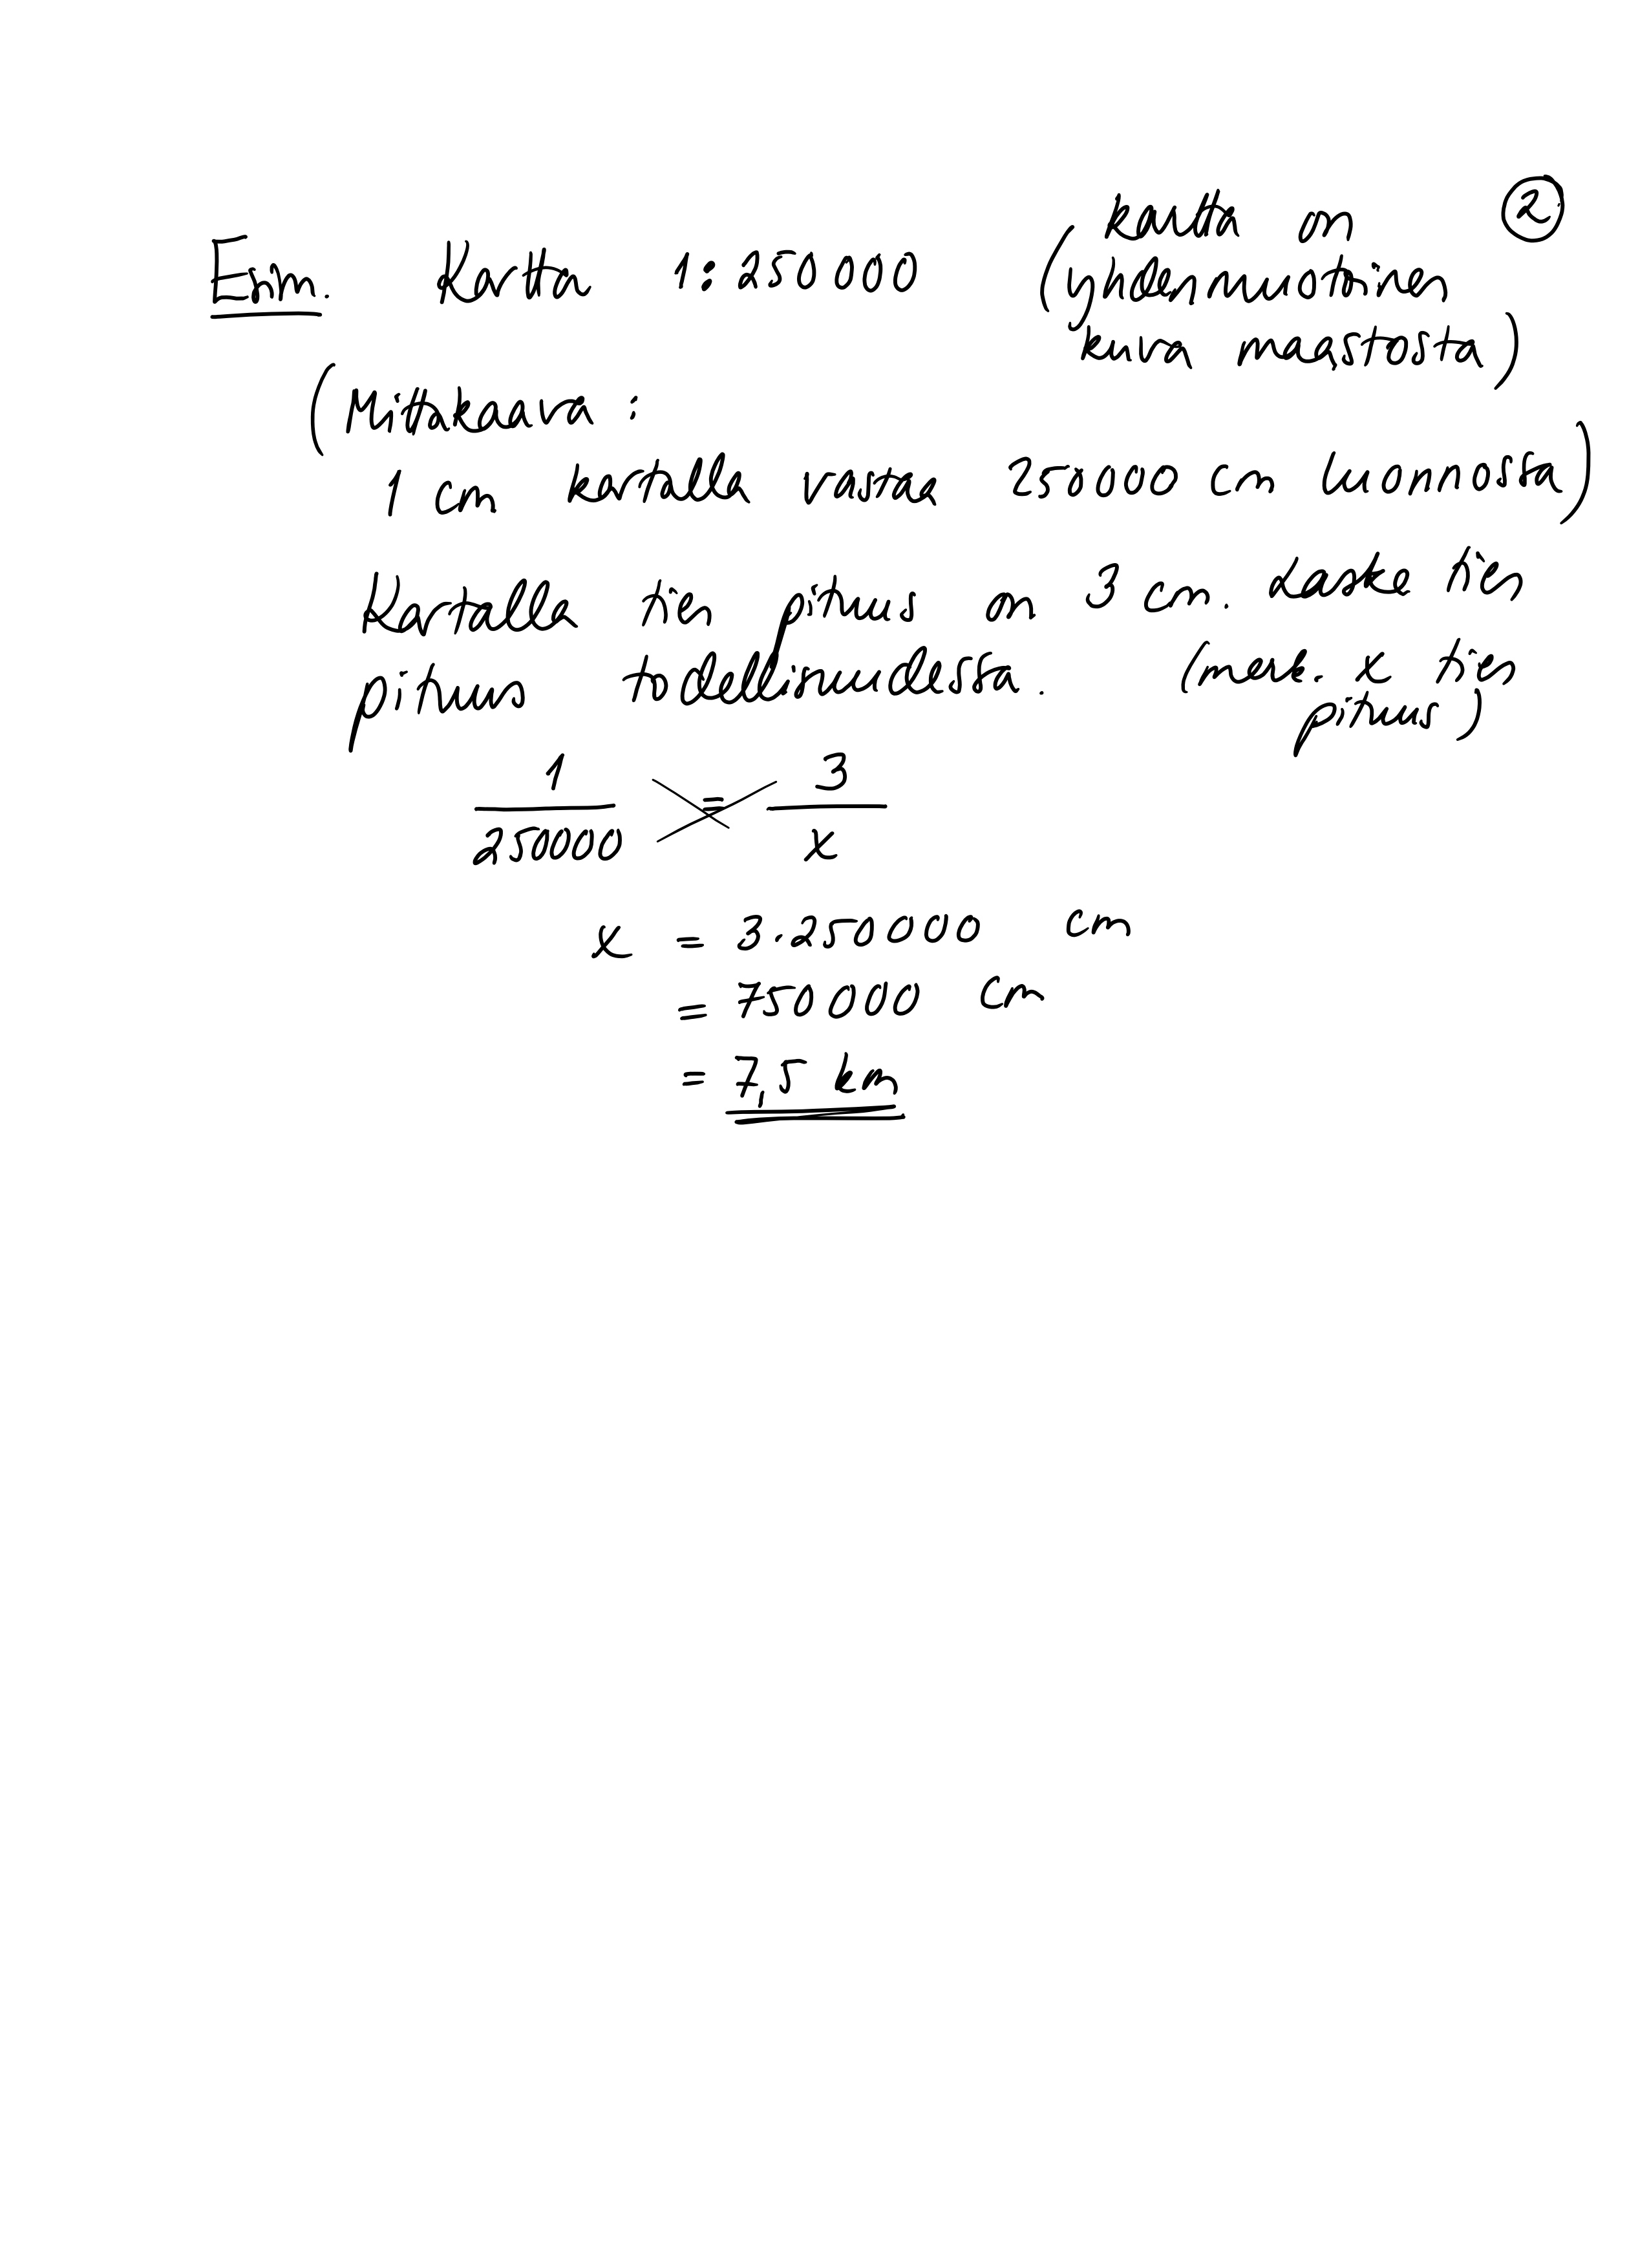 ②
Esim. Kartta 1:250000 (kartta on
yhdenmuotoinen
kuva maastosta)
(Mittakaava:
1 cm kartalla vastaa 250000 cm luonnossa)
Kartalla tien pituus on 3 cm. Laske tien
pituus todellisuudessa. (merk. x tien
pituus)
1/250000 = 3/x
x = 3·250000 cm
= 750000 cm
= 7,5 km